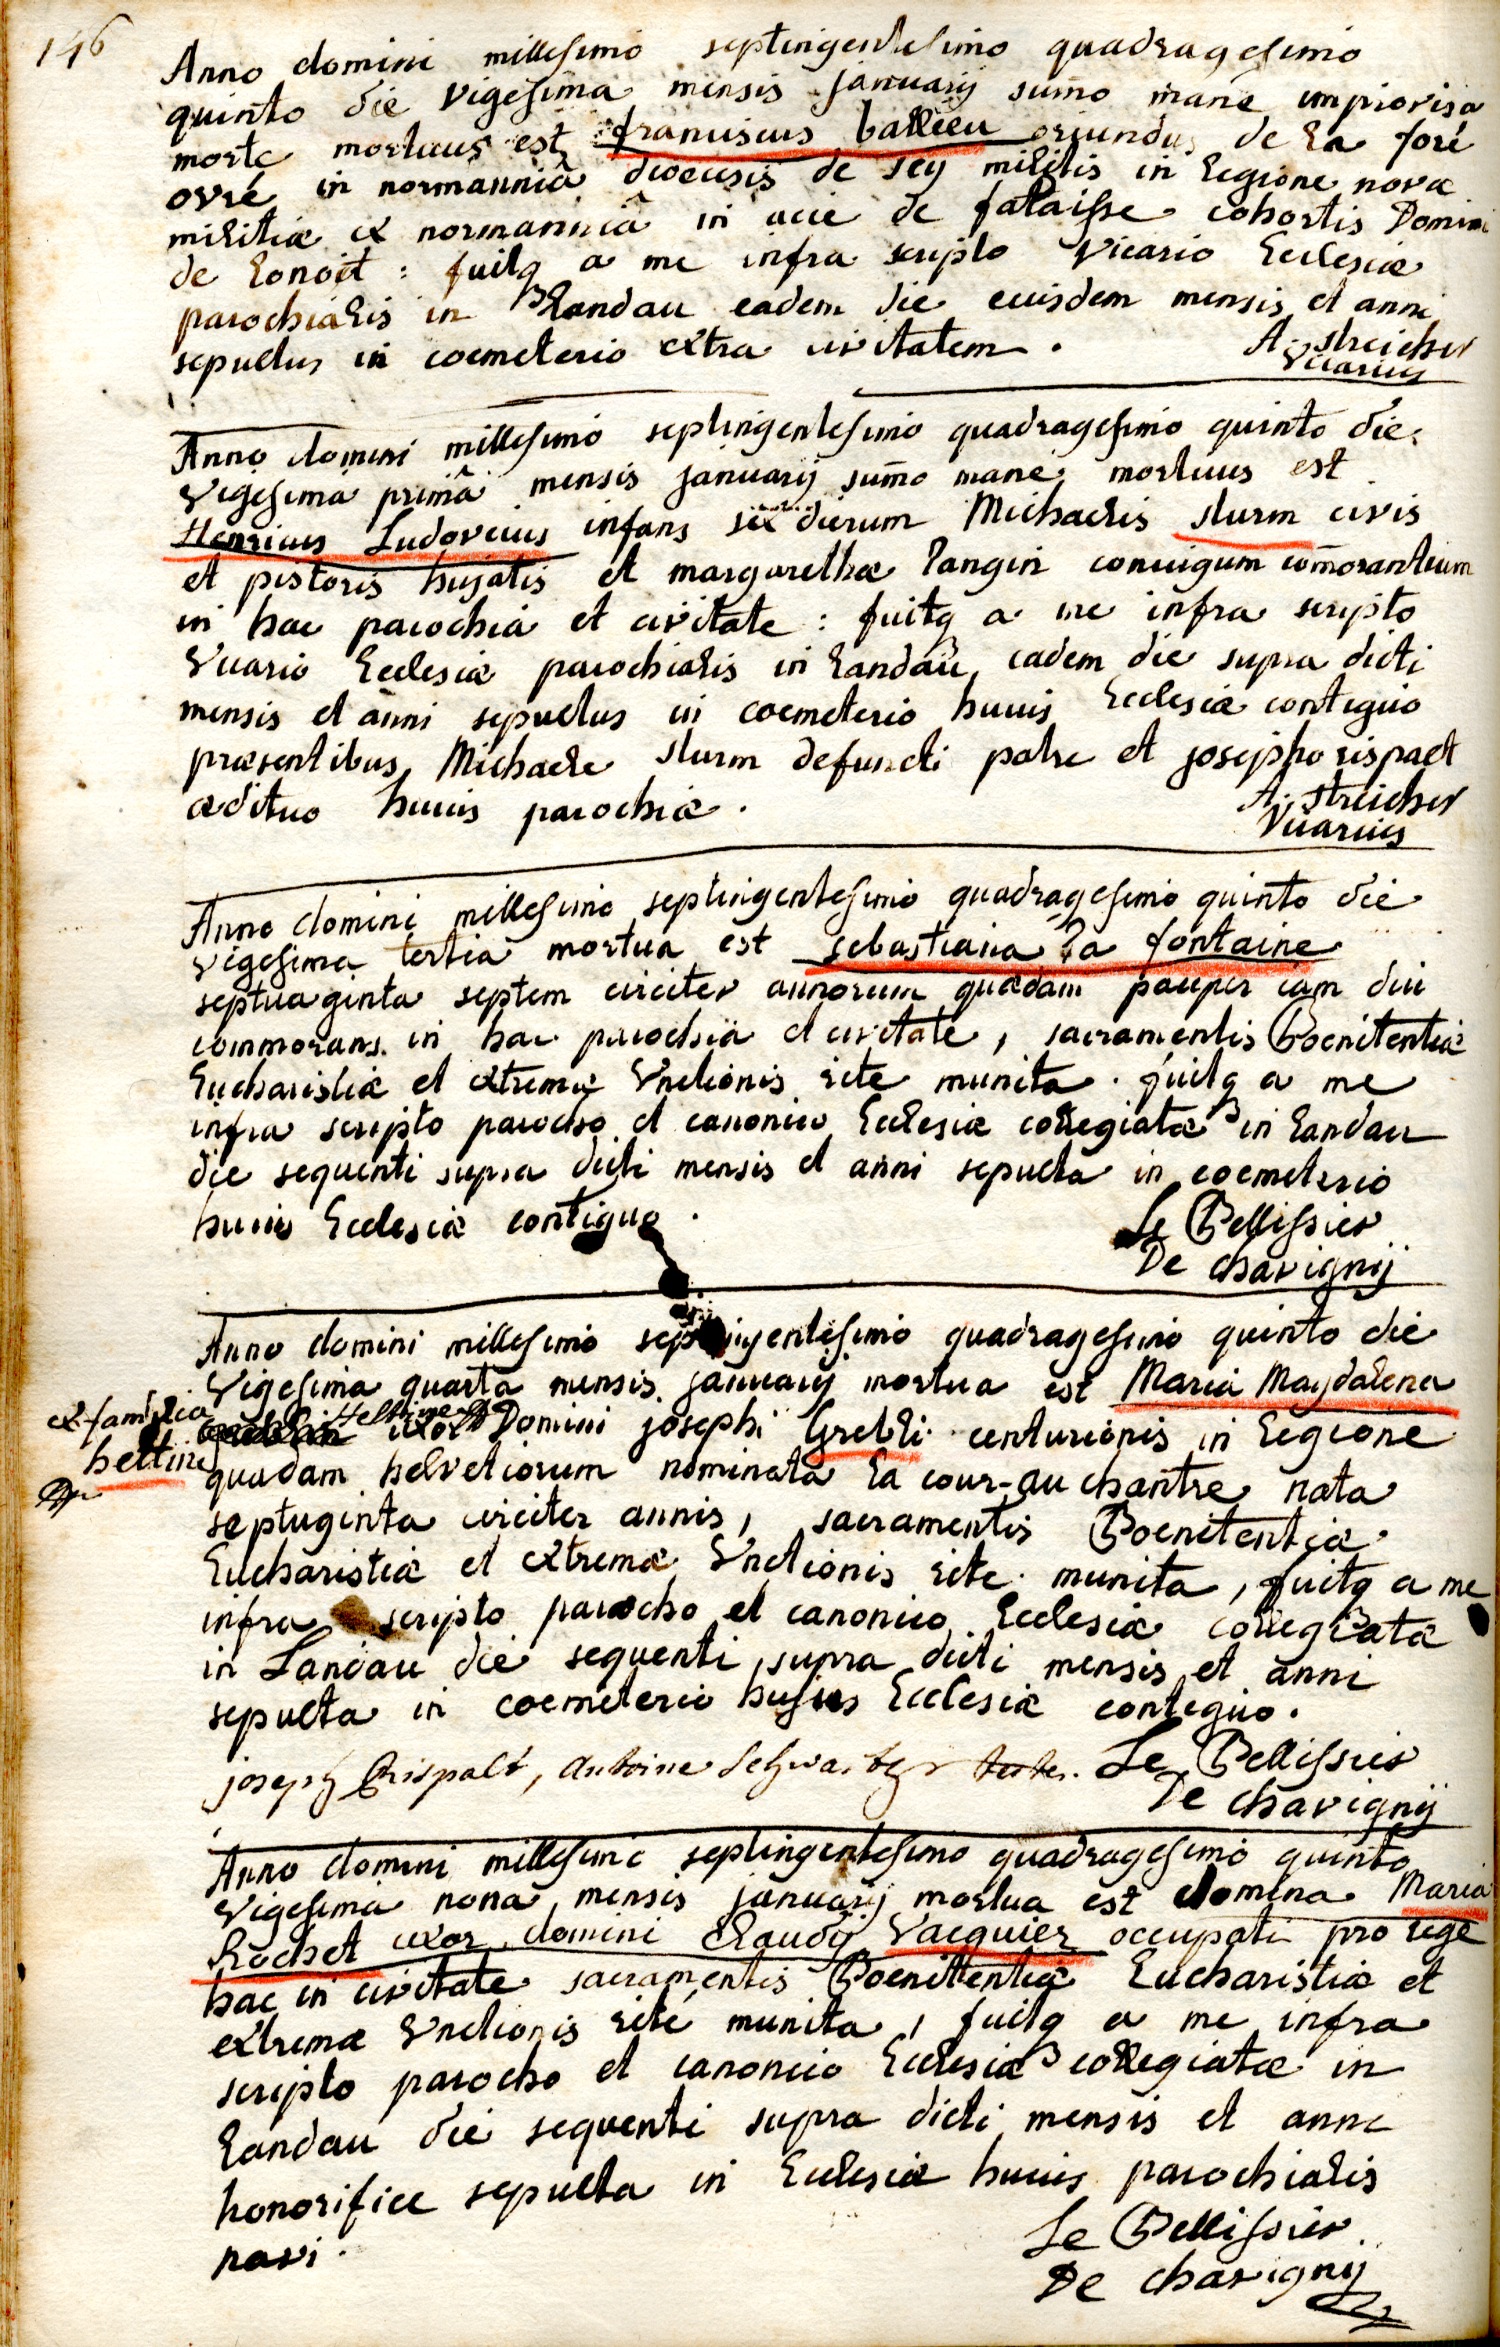 146
Anno domini millesimo septingentesimo quadragesimo
quinto die vigesima mensis januarij summo mane improvisa
morte mortuus est franciscus ballieu oriundus de la foré
ovré in normanniâ dioecesis de sey militis in legione nova
militiæ ex normanniâ in acie de falaisse cohortis Domini
de Lonoit : fuitq a me infra scripto vicario Ecclesiæ
parochialis in Landau eadem die eiusdem mensis et anni
sepultus in coemeterio extra civitatem .
A. streicher
Vicarius
Anno domini millesimo septingentesimo quadragesimo quinto die
vigesima primâ mensis januarij sumo mane mortuus est
Henricus Ludovicus infans six dierum Michaelis sturm civis
et pistoris hujatis et margarethæ Pangin coniugum comorantium
in hac parochia et civitate : fuitq a me infra scripto
Vicario Ecclesiæ parochialis in Landau eadem die supra dicti
mensis et anni sepultus in coemeterio huius Ecclesiæ contiguo
præsentibus Michaele sturm defuncti patre et josepho rispalt
ædituo huius parochiæ .
A. streicher
Vicarius
Anno domini millesimo septingentesimo quadragesimo quinto die
vigesima tertia mortua est sebastiana la fontaine
septuaginta septem circiter annorum quædam pauper iam diu
commorans in hac parochia et civitate , sacramentis Poenitentiæ
Eucharistiæ et extremæ Unctionis rite munita . fuitq a me
infra scripto parocho et canonico Ecclesiæ collegiatæ in Landau
die sequenti supra dicti mensis et anni sepulta in coemeterio
huius Ecclesiæ contiguo .
Le Pellissier
De chavignij
Anno domini millesimo septingentesimo quadragesimo quinto die
vigesima quarta mensis januarij mortua est Maria Magdalena
ex familia
heltine
uxor Domini josephi Grebli centurionis in legione
quadam helvetiorum nominata la cour-au chantre nata
septuginta circiter annis , sacramentis Poenitentiæ
Eucharistiæ et extremæ Unctionis rite munita , fuitq a me
infra scripto parocho et canonico Ecclesiæ collegiatæ
in Landau die sequenti supra dicti mensis et anni
sepulta in coemeterio hujus Ecclesiæ contiguo .
joseph Rispalt , Antoine Schwartz Le Pellissier
De chavignij
Anno domini millesimo septingentesimo quadragesimo quinto
vigesima nona mensis januarij mortua est domina Maria
Rochet uxor domini Claudij Vacquier occupati pro rege
hac in civitate sacramentis Poenittentiæ Eucharistiæ et
extremæ Unctionis rité munita , fuitq a me infra
scripto parocho et canonico Ecclesiæ collegiatæ in
Landau die sequenti supra dicti mensis et anni
honorifice sepulta in Ecclesiæ huius parochialis
navi .
Le Pellissier
De chavignij